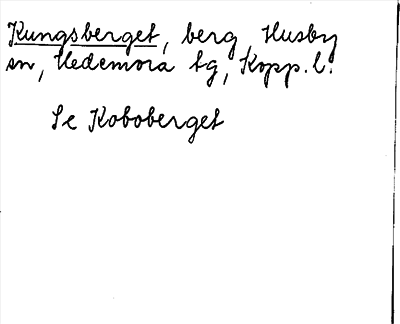 Kungsberget, berg, Husby
sn, Hedemora tg, Kopp. l.
Se Koboberget